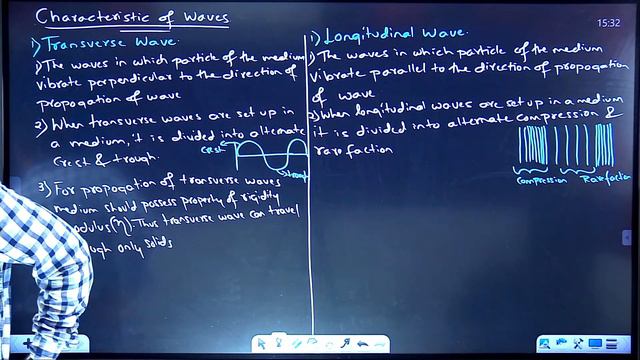 Characteristic of Waves
15:32
1) Transverse Wave.
1) The waves in which particle of the medium
vibrate perpendicular to the direction of
propogation of wave
2) When transverse waves are set up in
a medium, it is divided into alternate
Crest & trough.
Crest
trough
3) For propogation of transverse waves
medium should possess property of rigidity
modulus (η). Thus transverse wave can travel
only solids
1) Longitudinal Wave.
1) The waves in which particle of the medium
vibrate parallel to the direction of propogation
of wave
2) When longitudinal waves are set up in a medium
it is divided into alternate compression &
rarefaction
Compression
Rarefaction